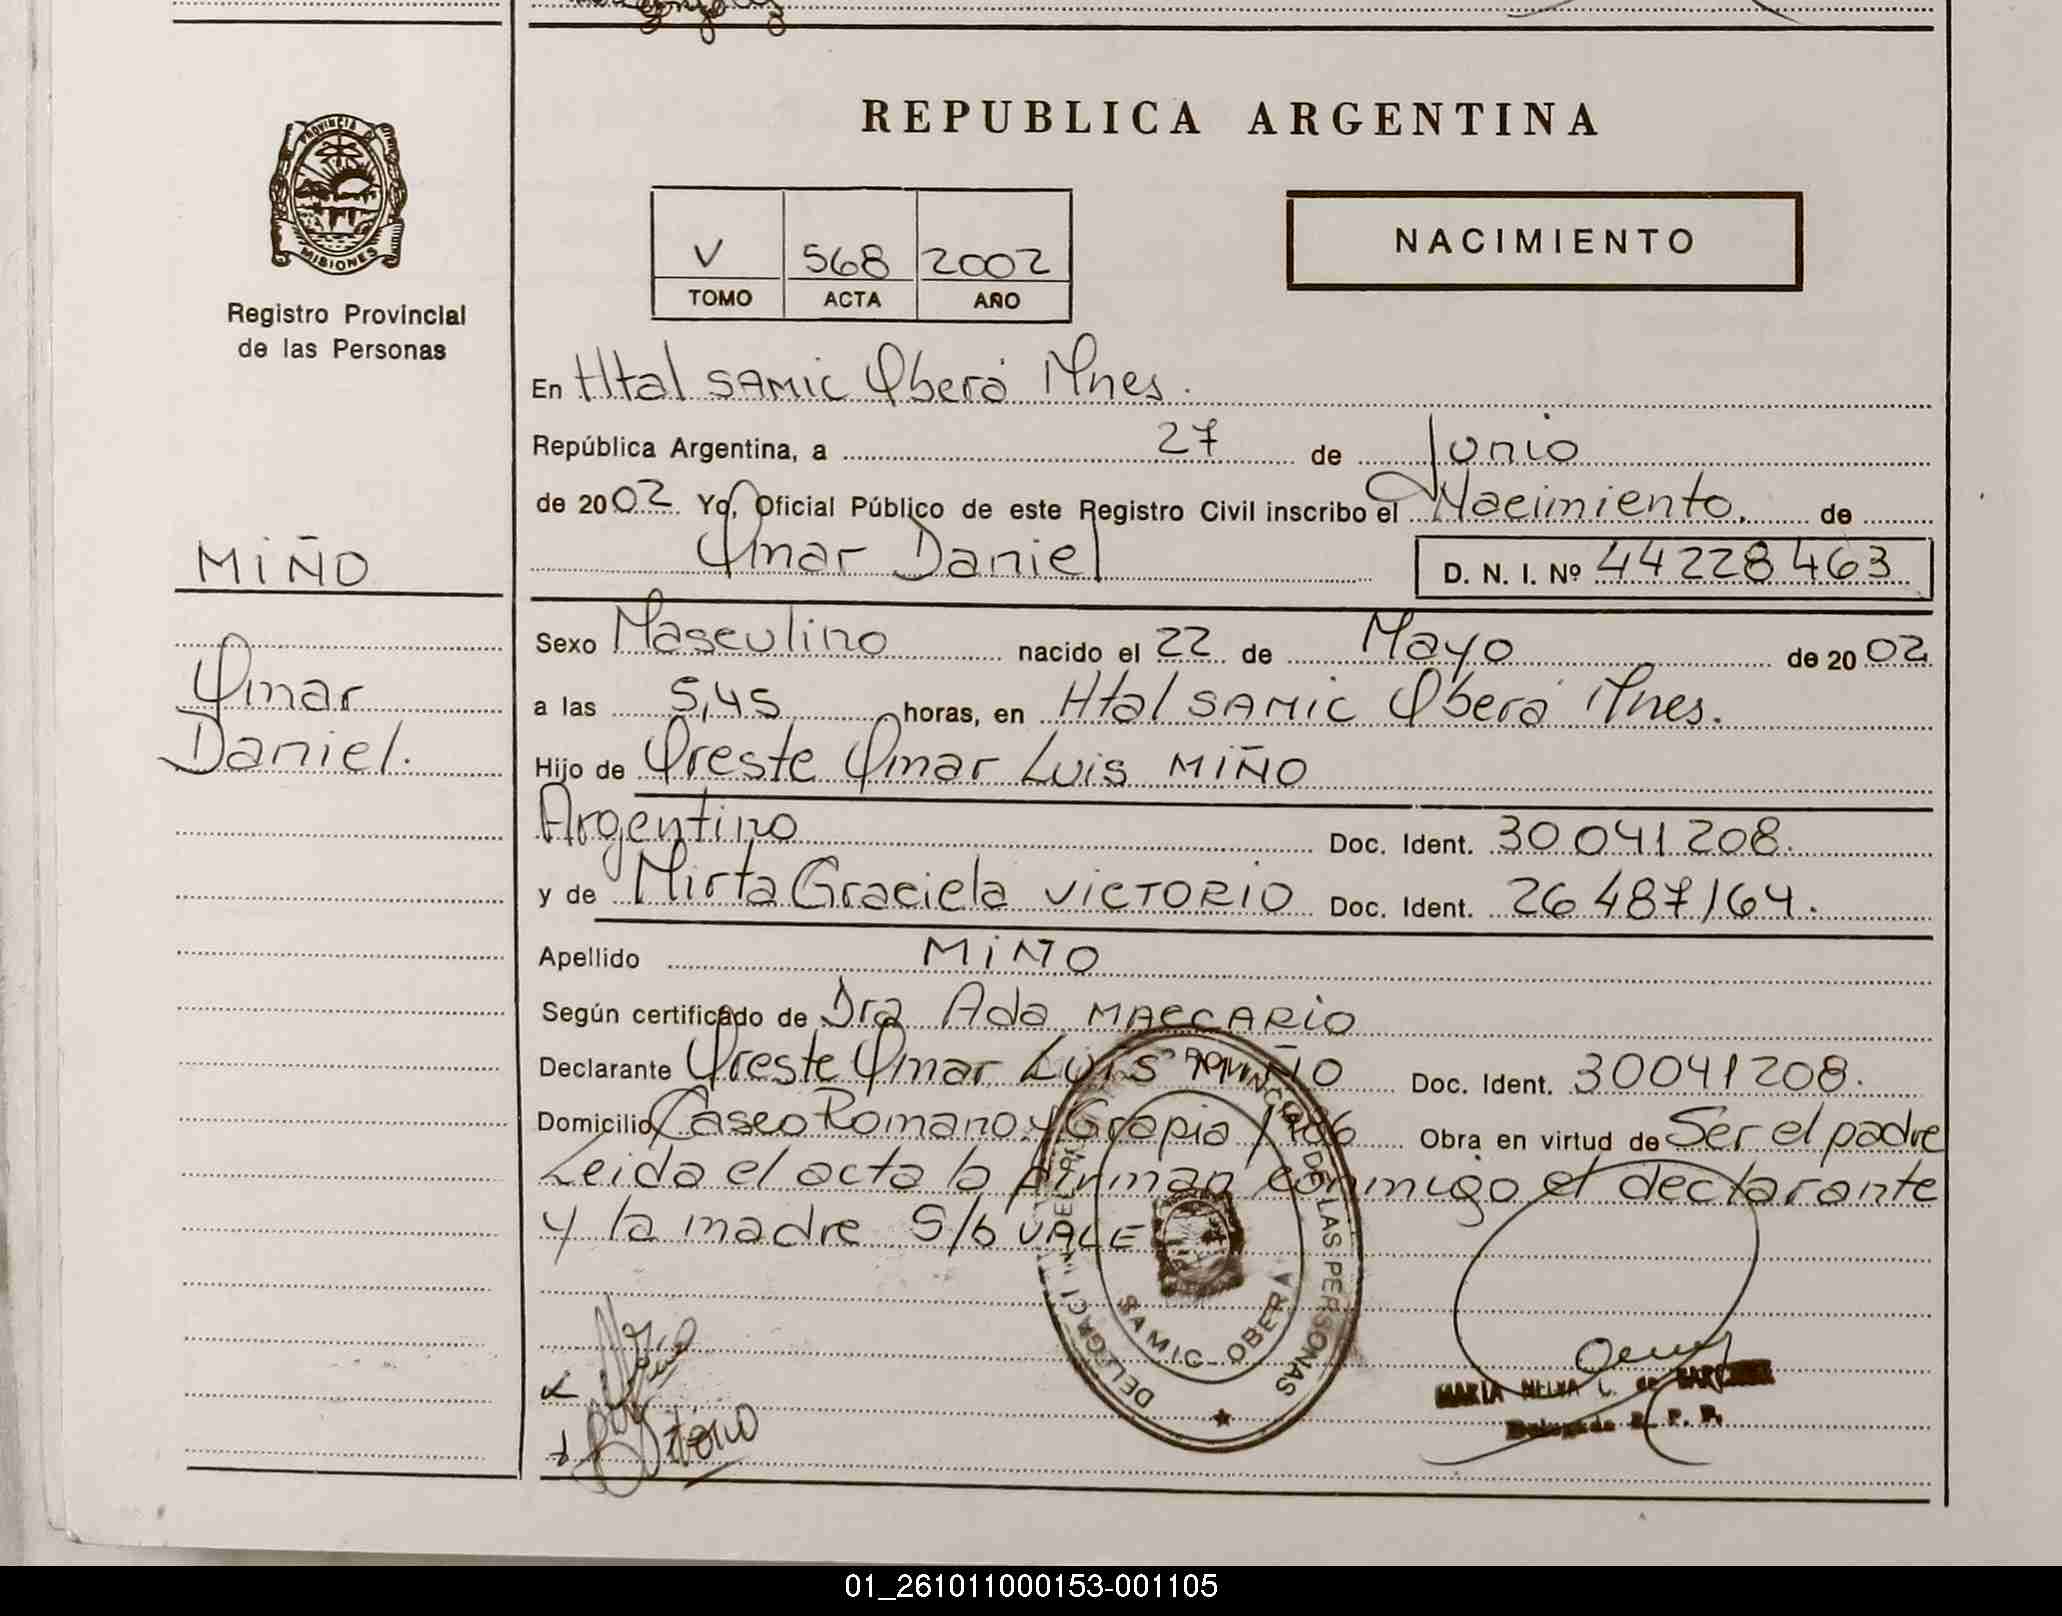 REPUBLICA ARGENTINA
PROVINCIA DE
MISIONES
Registro Provincial
de las Personas
V 568 2002
TOMO ACTA AÑO
NACIMIENTO
En Htal SAMIC Oberá Mnes.
República Argentina, a 27 de Junio
de 2002. Yo, Oficial Público de este Registro Civil inscribo el Nacimiento. de
Omar Daniel D. N. I. Nº 44228463
MIÑO
Omar
Daniel.
Sexo Masculino nacido el 22 de Mayo de 2002
a las 5,45 horas, en Htal SAMIC Oberá Mnes.
Hijo de Oreste Omar Luis MIÑO
Argentino Doc. Ident. 30041208.
y de Mirta Graciela VICTORIO Doc. Ident. 26487164.
Apellido MIÑO
Según certificado de Dra Ada MACCARIO
Declarante Oreste Omar Luis MIÑO Doc. Ident. 30041208.
Domicilio Caseo Romano y Grapia Obra en virtud de Ser el padre
Leida el acta la firman conmigo el declarante
y la madre S/b VALE
PROVINCIAL DE LAS PERSONAS
SAMIC - OBERA
MARIA L. de
Delegada R. P. P.
01_261011000153-001105